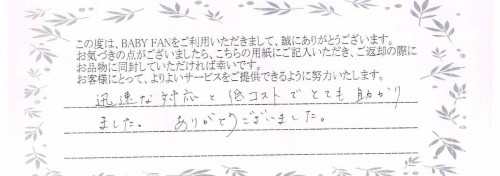 この度は、BABY FANをご利用いただきまして、誠にありがとうございます。
お気づきの点がございましたら、こちらの用紙にご記入いただき、ご返却の際に
お品物に同封していただければ幸いです。
お客様にとって、よりよいサービスをご提供できるように努力いたします。
迅速な対応と低コストでとても助かり
ました。 ありがとうございました。